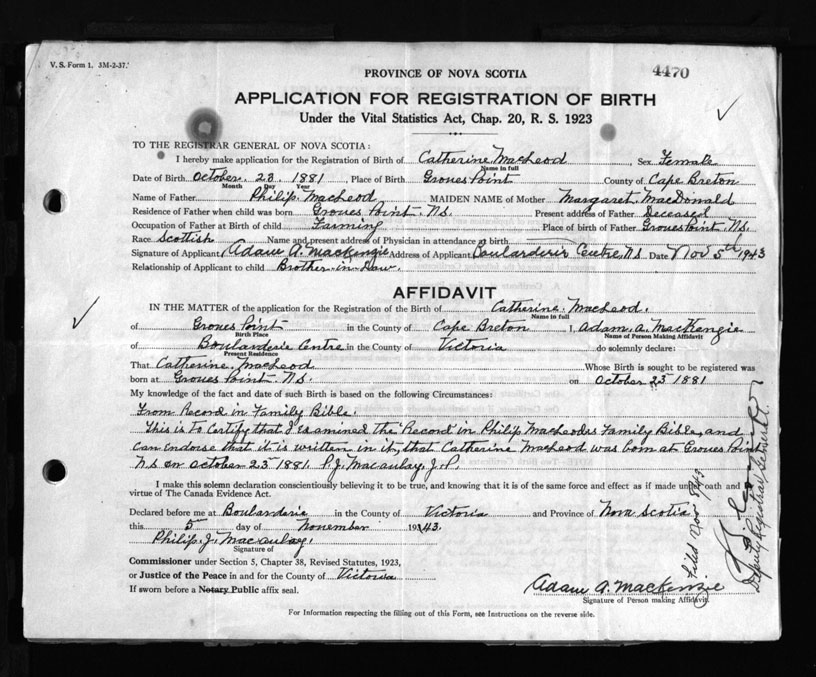 V. S. Form 1. 3M-2-37.
4470
PROVINCE OF NOVA SCOTIA
APPLICATION FOR REGISTRATION OF BIRTH
Under the Vital Statistics Act, Chap. 20, R. S. 1923
TO THE REGISTRAR GENERAL OF NOVA SCOTIA:
I hereby make application for the Registration of Birth of Catherine MacLeod, Sex Female
Name in full
Date of Birth October 23 1881, Place of Birth Groves Point County of Cape Breton
Month Day Year
Name of Father Philip MacLeod MAIDEN NAME of Mother Margaret MacDonald
Residence of Father when child was born Groves Point N.S. Present address of Father Deceased
Occupation of Father at Birth of child Farming Place of birth of Father Groves Point N.S.
Race Scottish Name and present address of Physician in attendance at birth
Signature of Applicant Adam A. MacKenzie Address of Applicant Boularderie Centre N.S. Date Nov 5th 1943
Relationship of Applicant to child Brother-in-Law.
AFFIDAVIT
IN THE MATTER of the application for the Registration of the Birth of Catherine MacLeod.
Name in full
of Groves Point in the County of Cape Breton I, Adam A. MacKenzie
Birth Place Name of Person Making Affidavit
of Boularderie Centre in the County of Victoria do solemnly declare:
Present Residence
That Catherine MacLeod Whose Birth is sought to be registered was
born at Groves Point N.S. on October 23 1881
My knowledge of the fact and date of such Birth is based on the following Circumstances:
From Record in Family Bible.
This is to Certify that I examined the Record in Philip MacLeods Family Bible, and
can Endorse that it is written in it, that Catherine MacLeod was born at Groves Point
N.S on October 23 1881. P.J. Macaulay J.P.
I make this solemn declaration conscientiously believing it to be true, and knowing that it is of the same force and effect as if made under oath and
virtue of The Canada Evidence Act.
Declared before me at Boularderie in the County of Victoria and Province of Nova Scotia
this 5 day of November 1943.
Philip J. Macaulay.
Signature of
Commissioner under Section 5, Chapter 38, Revised Statutes, 1923,
or Justice of the Peace in and for the County of Victoria
If sworn before a Notary Public affix seal.
Adam A. MacKenzie
Signature of Person making Affidavit.
For Information respecting the filling out of this Form, see Instructions on the reverse side.
Filed Nov 8 1943
Deputy Registrar General.